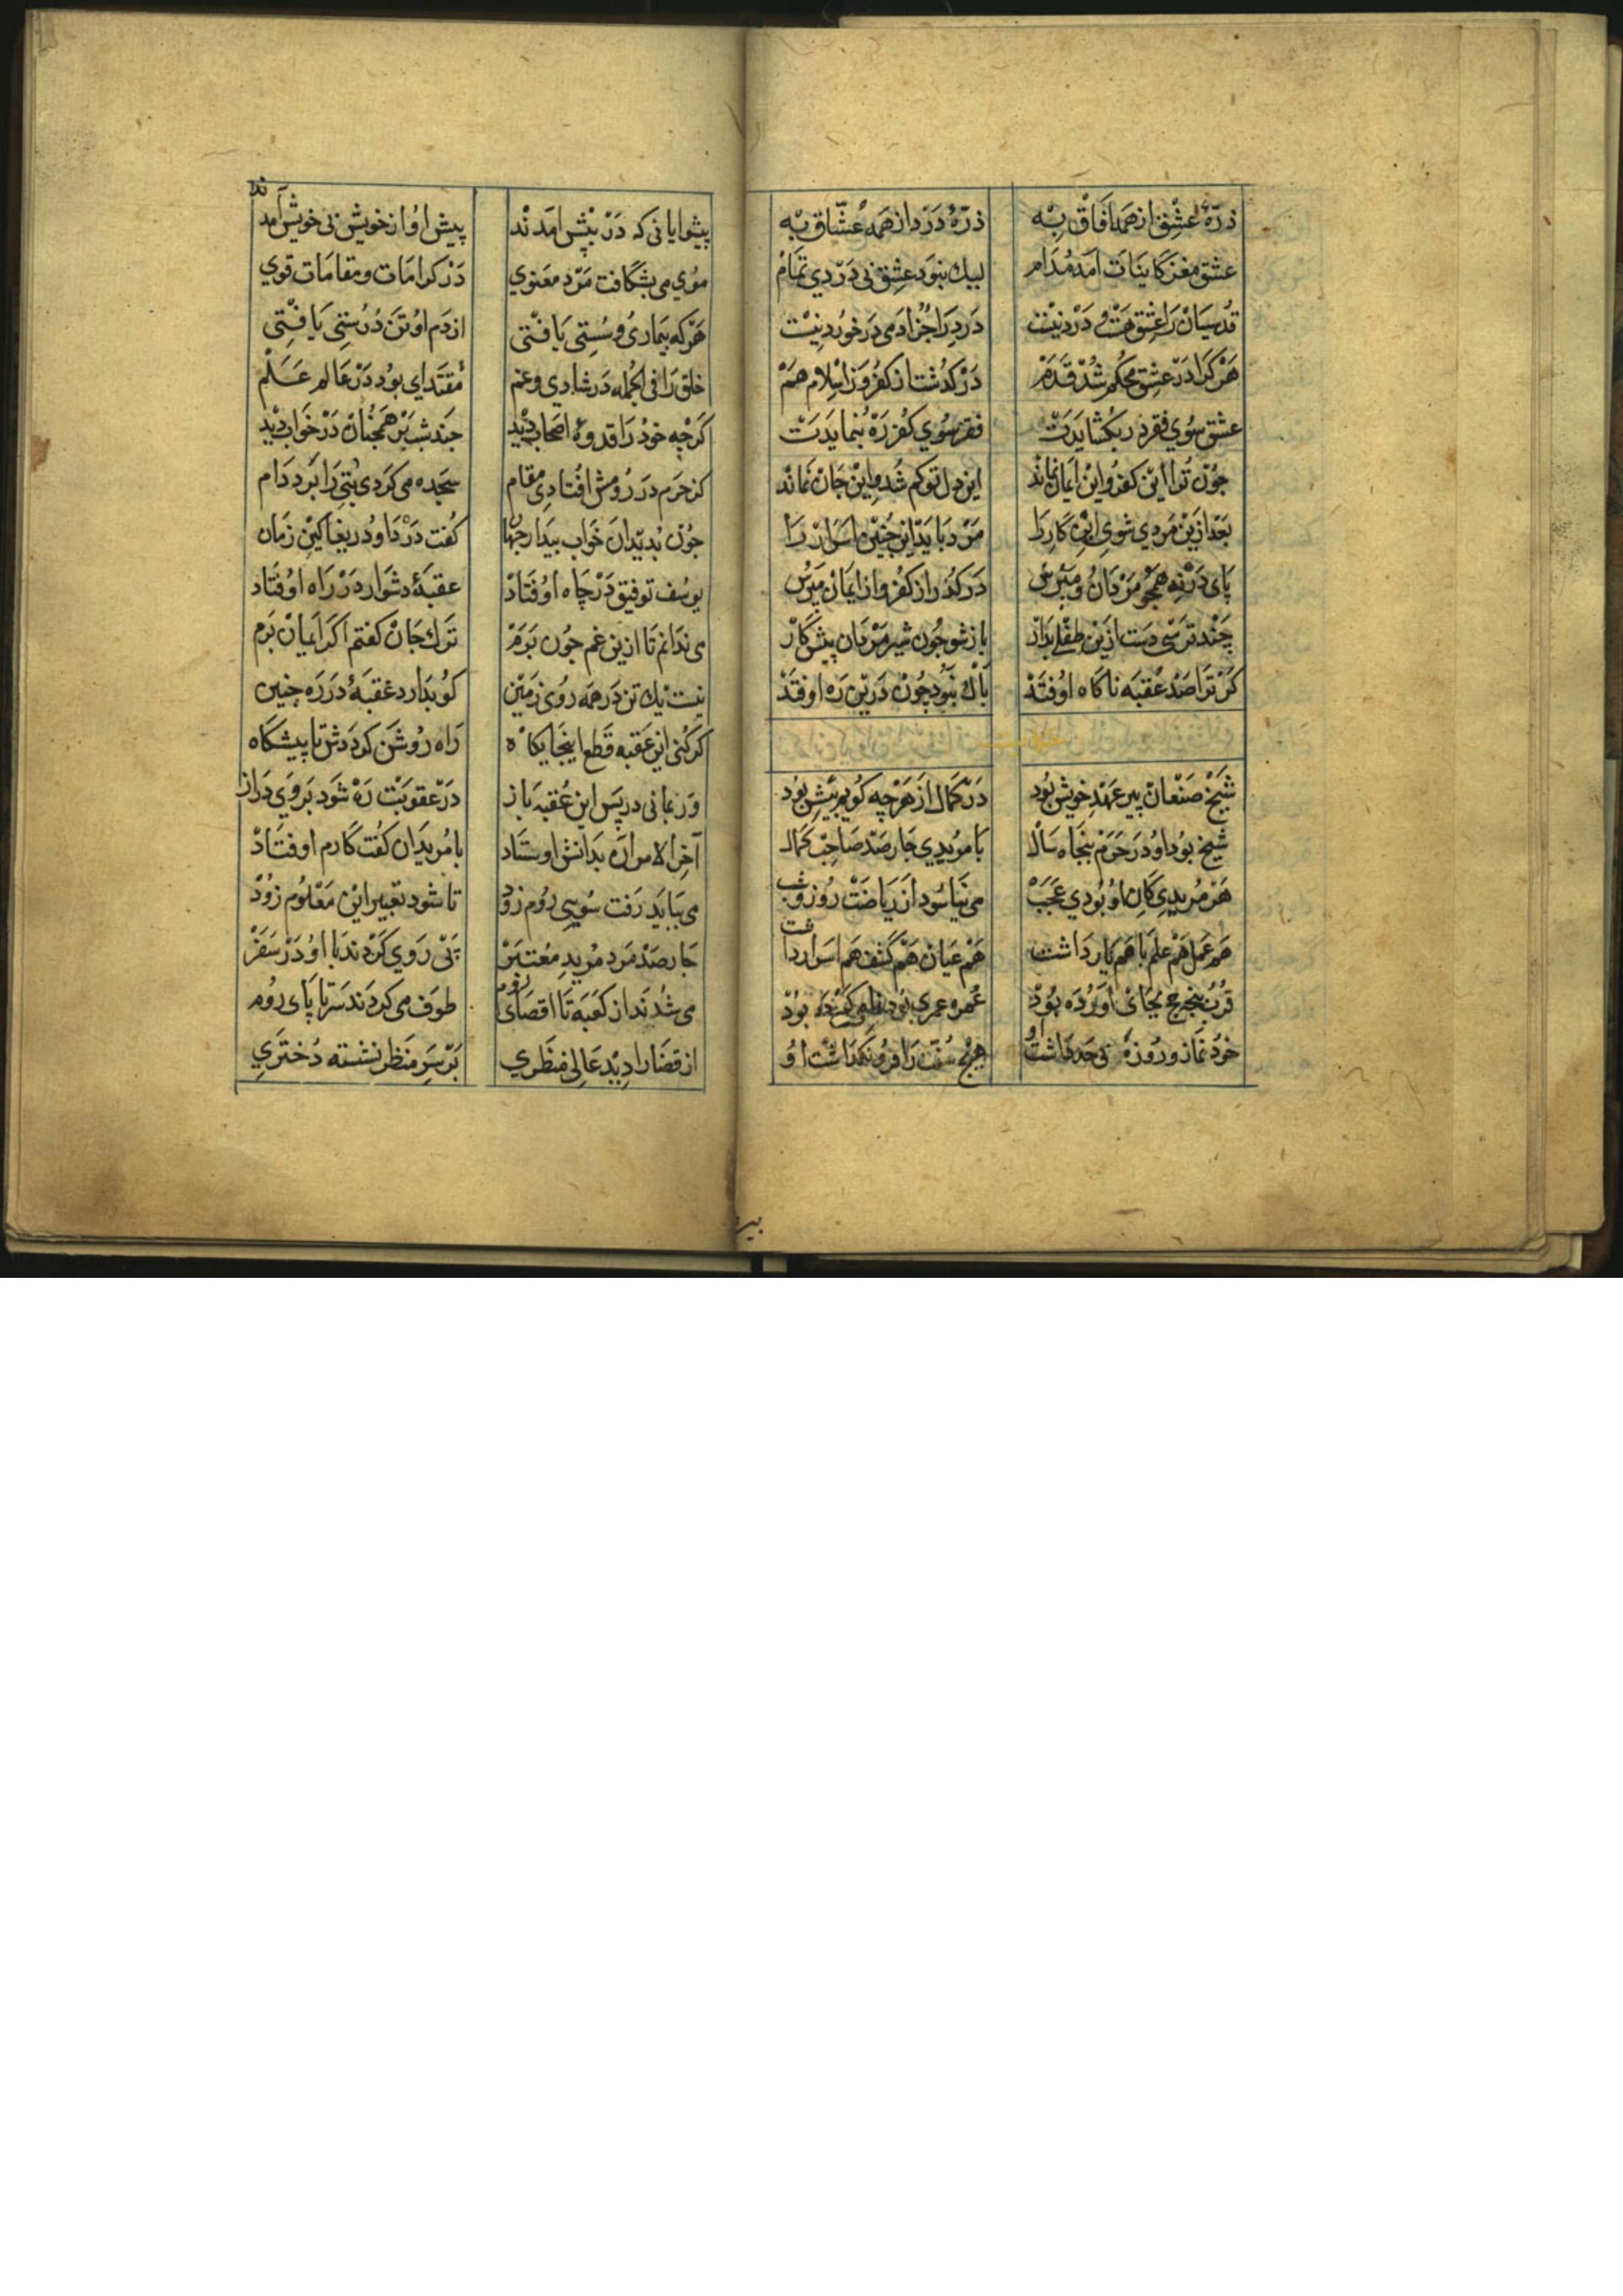 ذرّهٔ عشق از همه آفاق به ذرّهٔ درد از همه عشّاق به
عشق مغز کاینات آمد مدام لیک نبود عشق بی دردی تمام
قدسیان را عشق هست و درد نیست درد را جز آدمی درخورد نیست
هر کرا در عشق محکم شد قدم درکذشت از کفر وز اسلام هم
عشق سوی فقر در بکشایدت فقر سوی کفر ره بنمایدت
جون ترا این کفر و این ایمان نماند این دل توکم شد و این جان نماند
بعد ازین مردی شوی این کار را مرد باید این جنین اسرار را
پای درنه همجو مردان و مترس درکذر از کفر و از ایمان مترس
چند ترسی دست ازین طفلی بدار باز شو جون شیر مردان پیش کار
کر ترا صد عقبه ناکاه اوفتد باک نبود چون درین ره اوفتد
حکایت
شیخ صنعان پیر عهد خویش بود در کمال از هرچه کویم بیش بود
شیخ بود او در حرم پنجاه سال با مریدی جارصد صاحب کمال
هر مریدی کان او بودی عجب می نیاسود از ریاضت روز و شب
هم عمل هم علم با هم یار داشت هم عیان هم کشف هم اسرار داشت
قرب پنجه حج بجای آورده بود عمره عمری بود تا می کرده بود
خود نماز و روزه بی حد داشت او هیج سنت را فرو نکذاشت او
پیشوایانی که در پیش آمدند پیش او از خویش بی خویش آمدند
موی می بشکافت مرد معنوی در کرامات و مقامات قوی
هر که بیماری و سستی یافتی از دم او تن درستی یافتی
خلق را فی الجمله در شادی و غم مقتدای بود در عالم علم
کرچه خود را قدوهٔ اصحاب دید جند شب بر همجنان در خواب دید
کز حرم در رومش افتادی مقام سجده می کردی بتی را بر دوام
جون بدید آن خواب بیدار جهان کفت دردا و دریغا کین زمان
یوسف توفیق در چاه اوفتاد عقبهٔ دشوار در راه اوفتاد
می ندانم تا ازین غم جون برم ترک جان کفتم اکر ایمان برم
نیست یک تن در همه روی زمین کو ندارد عقبهٔ در ره چنین
کر کنی این عقبه قطع اینجایکاه راه روشن کرددش تا پیشکاه
ور بمانی در پس این عقبه باز در عقوبت ره شود بر وی دراز
آخر الامر آن بدانش اوستاد با مریدان کفت کارم اوفتاد
می بباید رفت سوی روم زود تا شود تعبیر این معلوم زود
جارصد مرد مرید معتبر پی روی کردند با او در سفر
می شدند از کعبه تا اقصای روم طوف می کردند سر تا پای روم
از قضا را دید عالی منظری بر سر منظر نشسته دختری